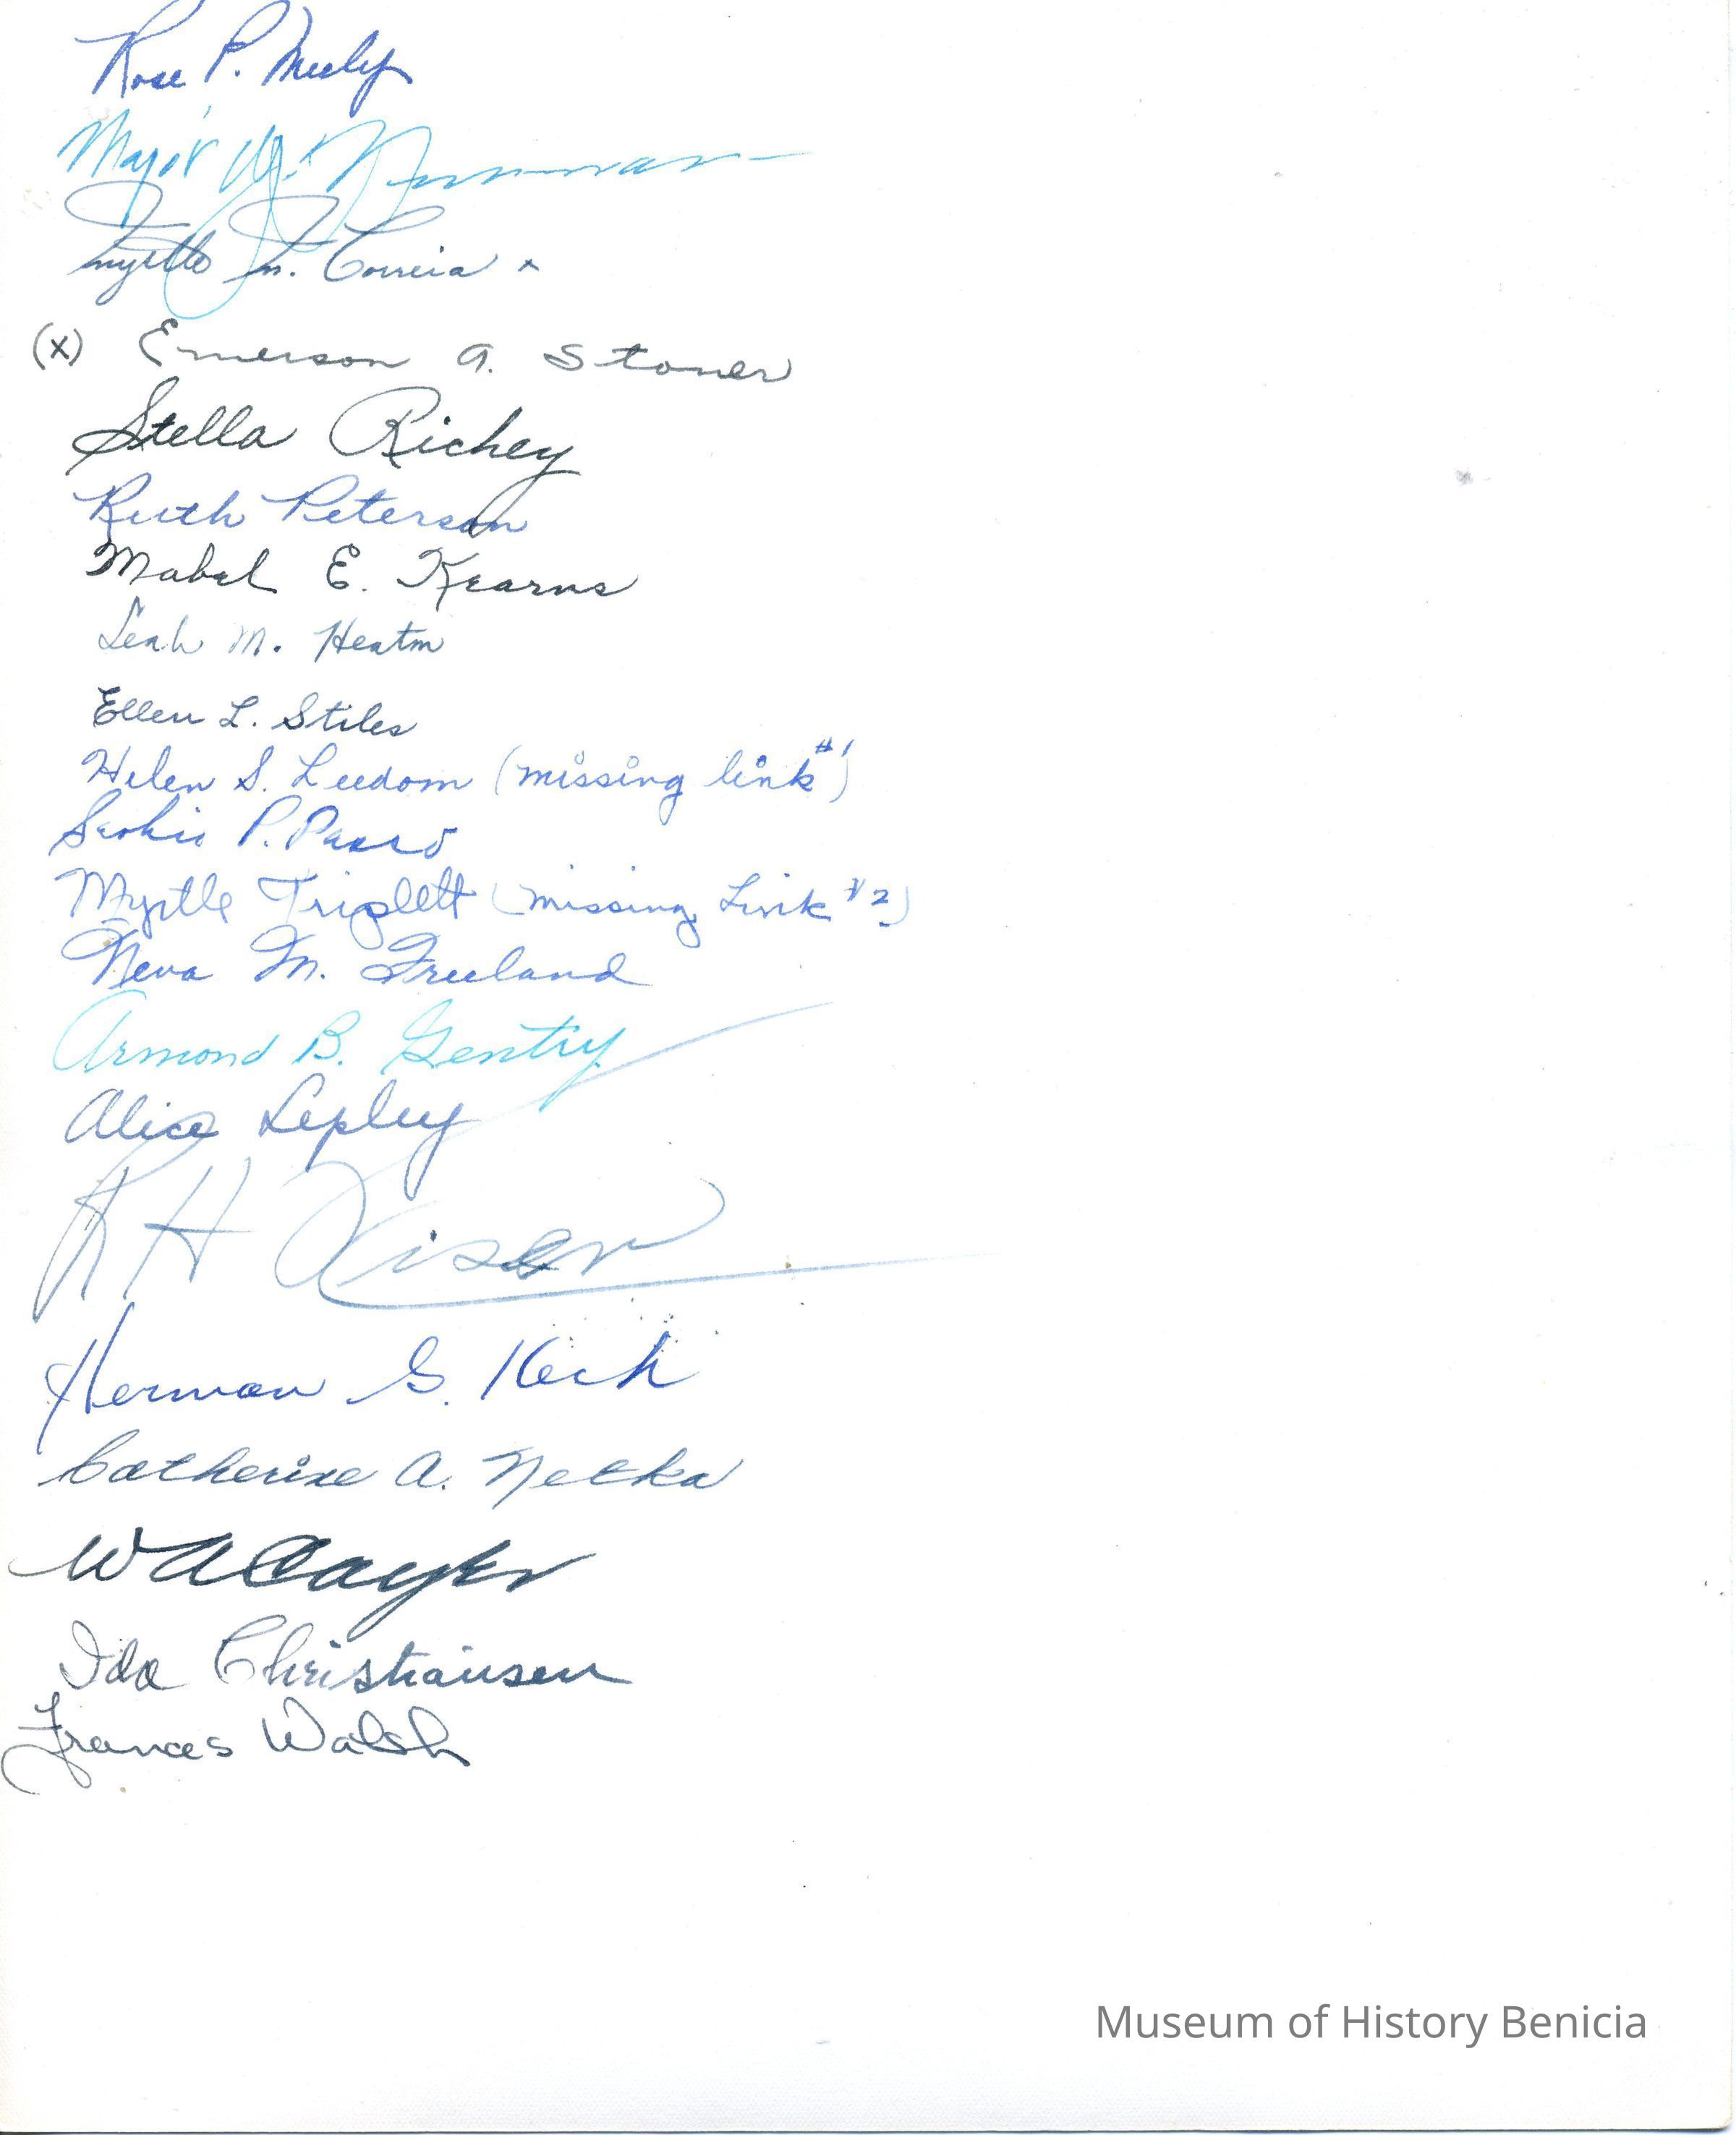 Rose P. Neely
Major W.
Myrtle M. Correia x
(x) Emerson A. Stoner
Stella Richey
Ruth Peterson
Mabel E. Kearns
Leah M. Heaton
Ellen L. Stiles
Helen S. Leedom (missing link #1)
P.
Myrtle Triplett (missing Link #2)
Neva M. Freeland
Armond B. Gentry
Alice Lepley
R H Kiser
Herman G. Koch
Catherine A. Netka
W A
Ida Christiansen
Frances Walsh
Museum of History Benicia